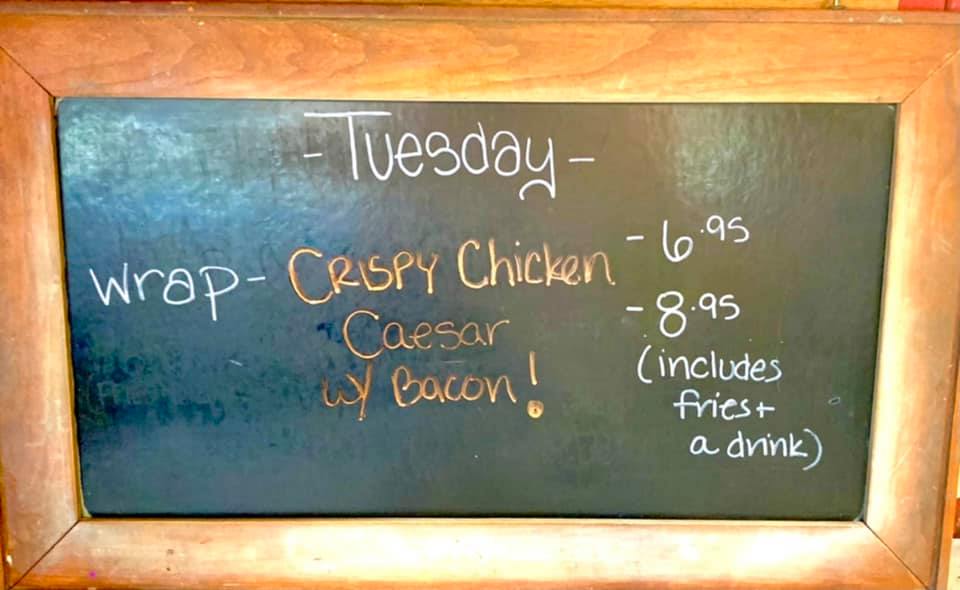 - Tuesday -
wrap - CRISPY Chicken - 6.95
Caesar - 8.95
w/ Bacon! (includes
fries +
a drink)